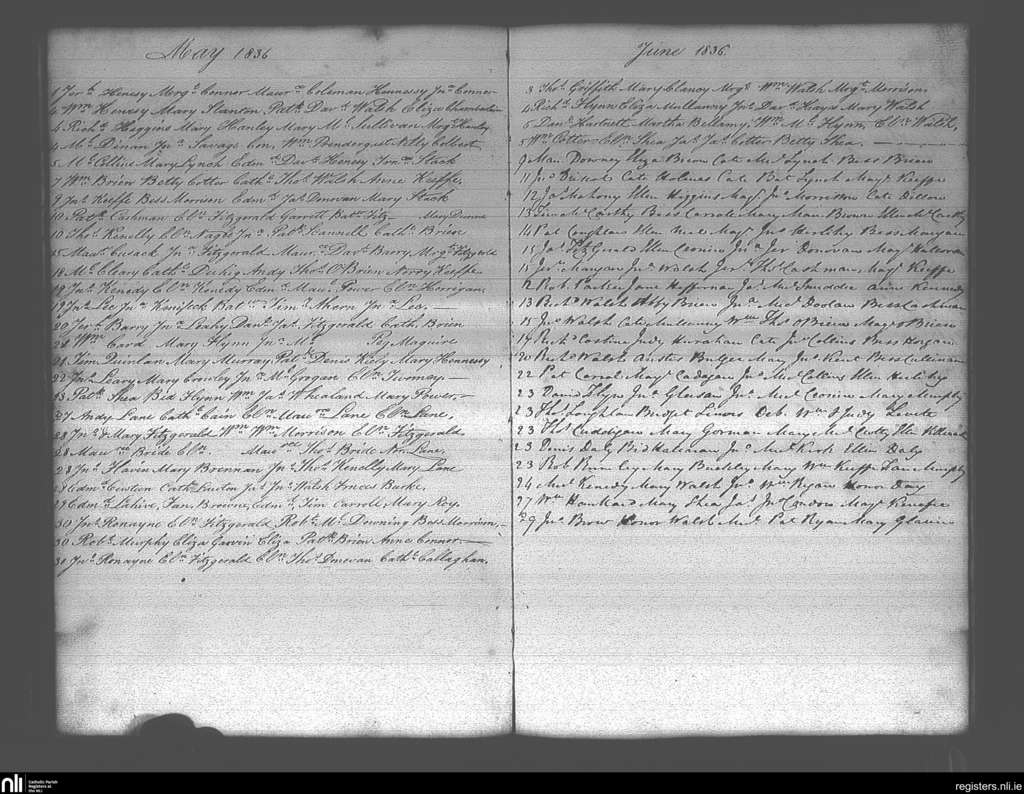 May 1836
1 Jerh. Henesy Margt. Connor Maurce. Coleman Hennessy Jno. Connor
4 Wm. Henesy Mary Stanton, Patk. Davd. Walsh Eliza Chamberlain
4 Richd. Higgins Mary Hanley Mary Ml. Sullivan Margt. Hanley
4 Ml. Dinan Jno. Savage Con. Wm. Prendergast Nelly Colbert
5 Ml. Collins Mary Lynch Edmd. Davd. Henesy Slack
7 Wm. Brien Betty Cotter Cathe. Thos. Walsh Anne Keeffe
9 Jas. Keeffe Bess Morrison Edmd. Jas. Donovan Mary Stack
10 Patk. Cashman Elln. Fitzgerald Garrett Batw. Fitz— Mary Dinane
10 Thos. Kenelly Elln. Nagle Jno. Patk. Scannell Cathe. Brien
15 Maurce. Cusack Jno. Fitzgerald Maurce. Davd. Barry Margt. Fitzgerald
18 Ml. Cleary Cathe. Andy Thos. O'Brien Norry Keeffe
19 Jas. Kenedy Elln. Kenedy Edmd. Maurce. Power Elln. Horrigan
19 Jno. Lee Jno. Batw. Tim. Ahern Jno. Lee
20 Jno. Barry Jno. Leahy Davd. Jas. Fitzgerald Cath. Brien
21 Wm. Mary Flynn Jno. Ml. Peg Maguire
21 Tim Quinlan Mary Murray Patk. Denis Kiely Mary Hennessy
22 Jno. Leary Mary Crowley Jno. Ml. Grogan Elln. Twomey
23 Patk. Shea Bid Flynn Wm. Jas. Whealand Mary Power
27 Andy Lane Cathe. Cain Elln. Maurce. Lane Elln. Lane
28 Jno. & Mary Fitzgerald Wm. Wm. Morrison Elln. Fitzgerald
28 Maurce. Bride Elln. Maurce. Thos. Bride Lane
28 Jno. Havin Mary Brennan Jno. Thos. Kenelly Mary Lane
29 Edmd. Cathe. Jas. Jno. Walsh Burke
29 Edmd. Lehive, Jan. Browne, Edmd. Tim Carroll, Mary Roy.
30 Jno. Ronayne Elln. Fitzgerald Robt. Ml. Downing Bess Morrison
30 Robt. Murphy Eliza Garvin Eliza Patk. Brien Anne Connor
31 Jno. Ronayne Elln. Fitzgerald Elln. Thos. Donovan Cathe. Callaghan
June 1836
3 Thos. Griffith Mary Clancy Margt. Wm. Walsh Margt. Morrison
4 Richd. Flynn Eliza Mullowny Jno. Dar. Hayes Mary Walsh
5 Danl. Hartnett Martha Bellamy, Wm. Ml. Flynn, Elln. Walsh
5 Wm. Cotter Elln. Shea Jas. Jas. Cotter Betty Shea.
9 Mau. Downey Eliza Brien Cate Ml. Lynch Bess Brien
11 Jno. Cate Holmes Cate Pat Lynch Mary Keeffe
12 Jas. Mahony Ellen Higgins Margt. Jno. Morrisson Cate Dillon
13 McCarthy Bess Carroll Mary Mau. Brown Ellen McCarthy
14 Pat Coughlan Ellen Neil Margt. Jas. Herlihy Bess Mangan
15 Jas. Fitzgerald Ellen Cronin Jno. Jer. Donovan Margt. Halloran
15 Jer. Mangan Jno. Walsh Jer. Thos. Cashman, Margt. Keeffe
12 Rob. Parker Jane Heffernan Jas. Anne Kennedy
13 Richd. Walsh Abby Brien Jno. Michl. Doolan Bess Cashman
15 Jno. Walsh Cate Mullowny Wm. Thos. O'Brien Margt. O'Brien
19 Richd. Costine Judy Hurahan Cate Jno. Collins Bess Horgan
20 Richd. Walsh Anstes Bulger Mary Jno. Kent Bess Cullinan
22 Pat Carrol Margt. Cadagan Jno. Michl. Collins Ellen Herlihy
23 Danl. Flyn Jno. Gleasan Jno. Michl. Cronin Mary Murphy
23 Thos. Loughlan Bridget Deb. Wm. & Judy
23 Thos. Cuddigan Mary Gorman Mary Michl. Ellen
23 Denis Daly Bid Kaleman Jno. Michl. Kirk Ellen Daly
23 Rob. Mary Buckley Mary Wm. Keeffe Murphy
24 Michl. Kenedy Mary Walsh Jno. Wm. Ryan Honor Day
27 Wm. Mary Shea Jas. Jno. Condon Margt. Keneficke
29 Jno. Brow Honor Walsh Michl. Pat Ryan Mary Glavin
nli
Catholic Parish
Registers at
the NLI
registers.nli.ie